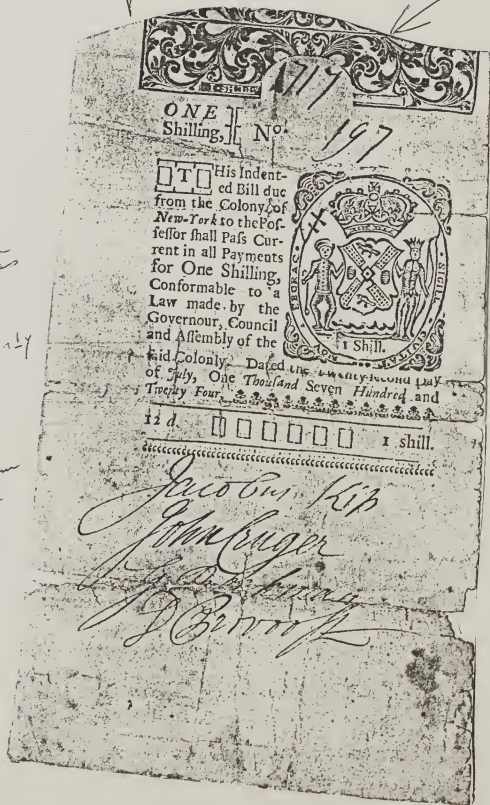 1717
ONE
Shilling,
No.
197
THis Indent-
ed Bill due
from the Colony of
New-York to the Pos-
sessor shall Pass Cur-
rent in all Payments
for One Shilling,
Conformable to a
Law made by the
Governour, Council
and Assembly of the
said Colonly Dated the Twenty-second Day
of July, One Thousand Seven Hundred and
Twenty Four,
SIGIL CIVITA EBORAC
1 Shill.
12 d. 1 shill.
Jacobus Kip
John Cruger